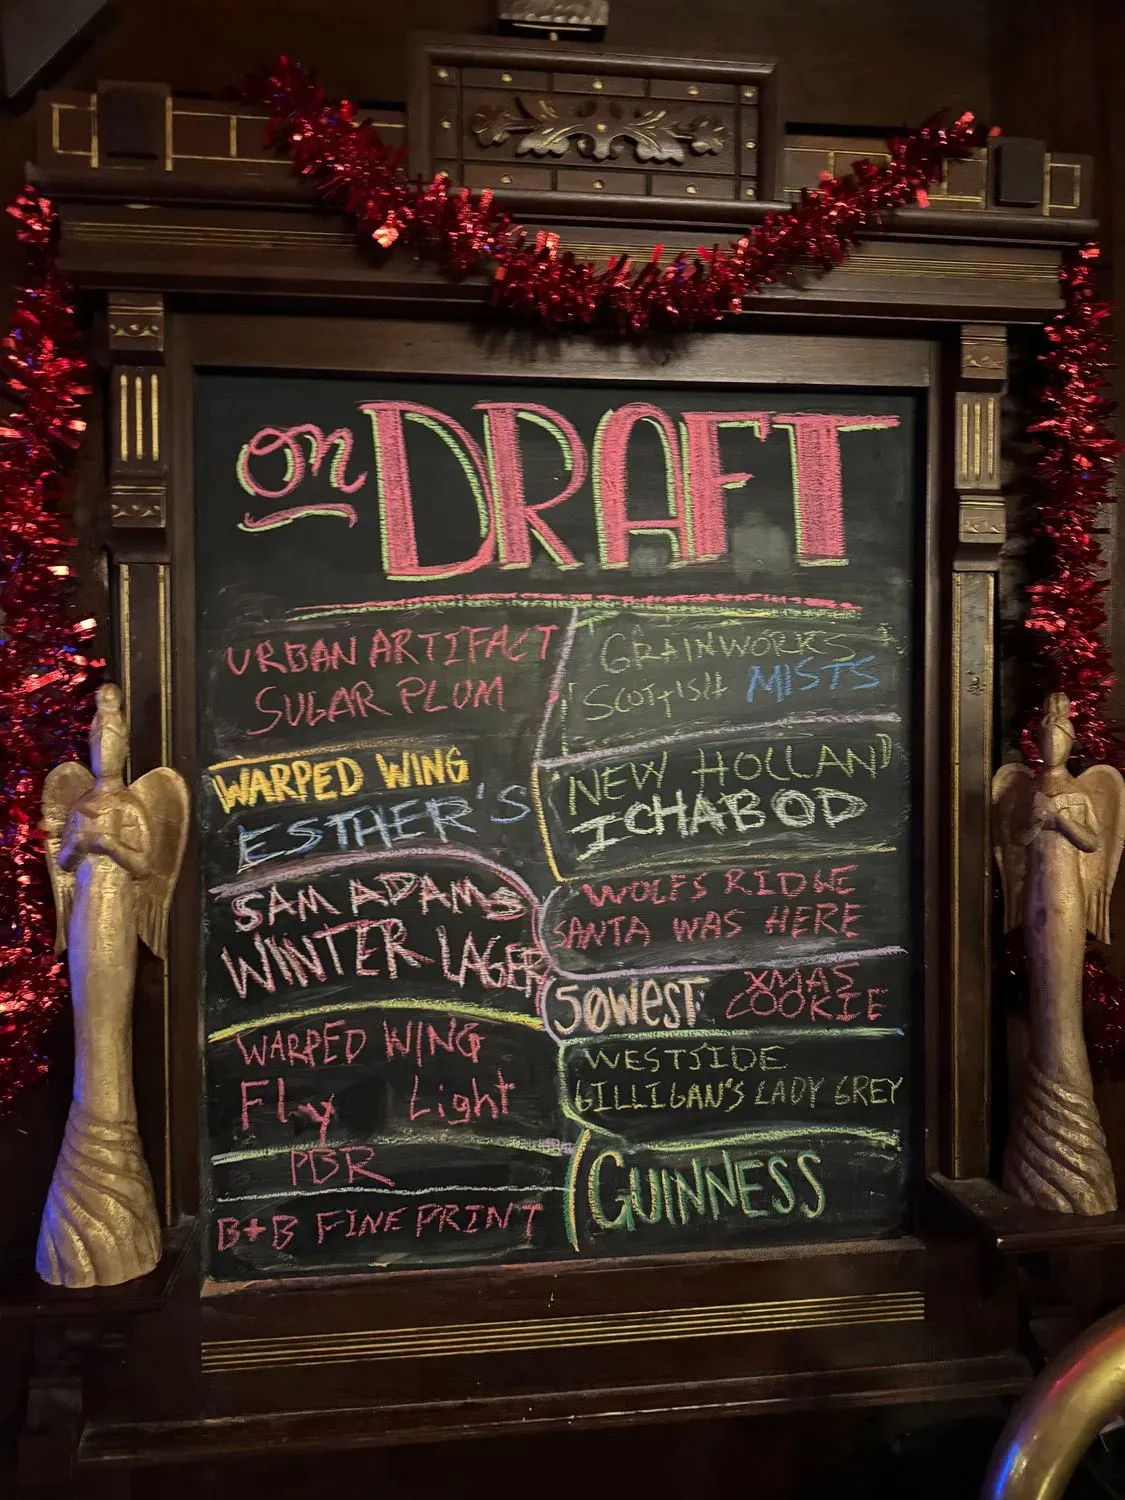 on DRAFT
URBAN ARTIFACT
SUGAR PLUM
WARPED WING
ESTHER'S
SAM ADAMS
WINTER LAGER
WARPED WING
Fly Light
PBR
B+B FINE PRINT
GRAINWORKS
SCOTTISH MISTS
NEW HOLLAND
ICHABOD
WOLF'S RIDGE
SANTA WAS HERE
50WEST XMAS
COOKIE
WESTSIDE
GILLIGAN'S LADY GREY
GUINNESS